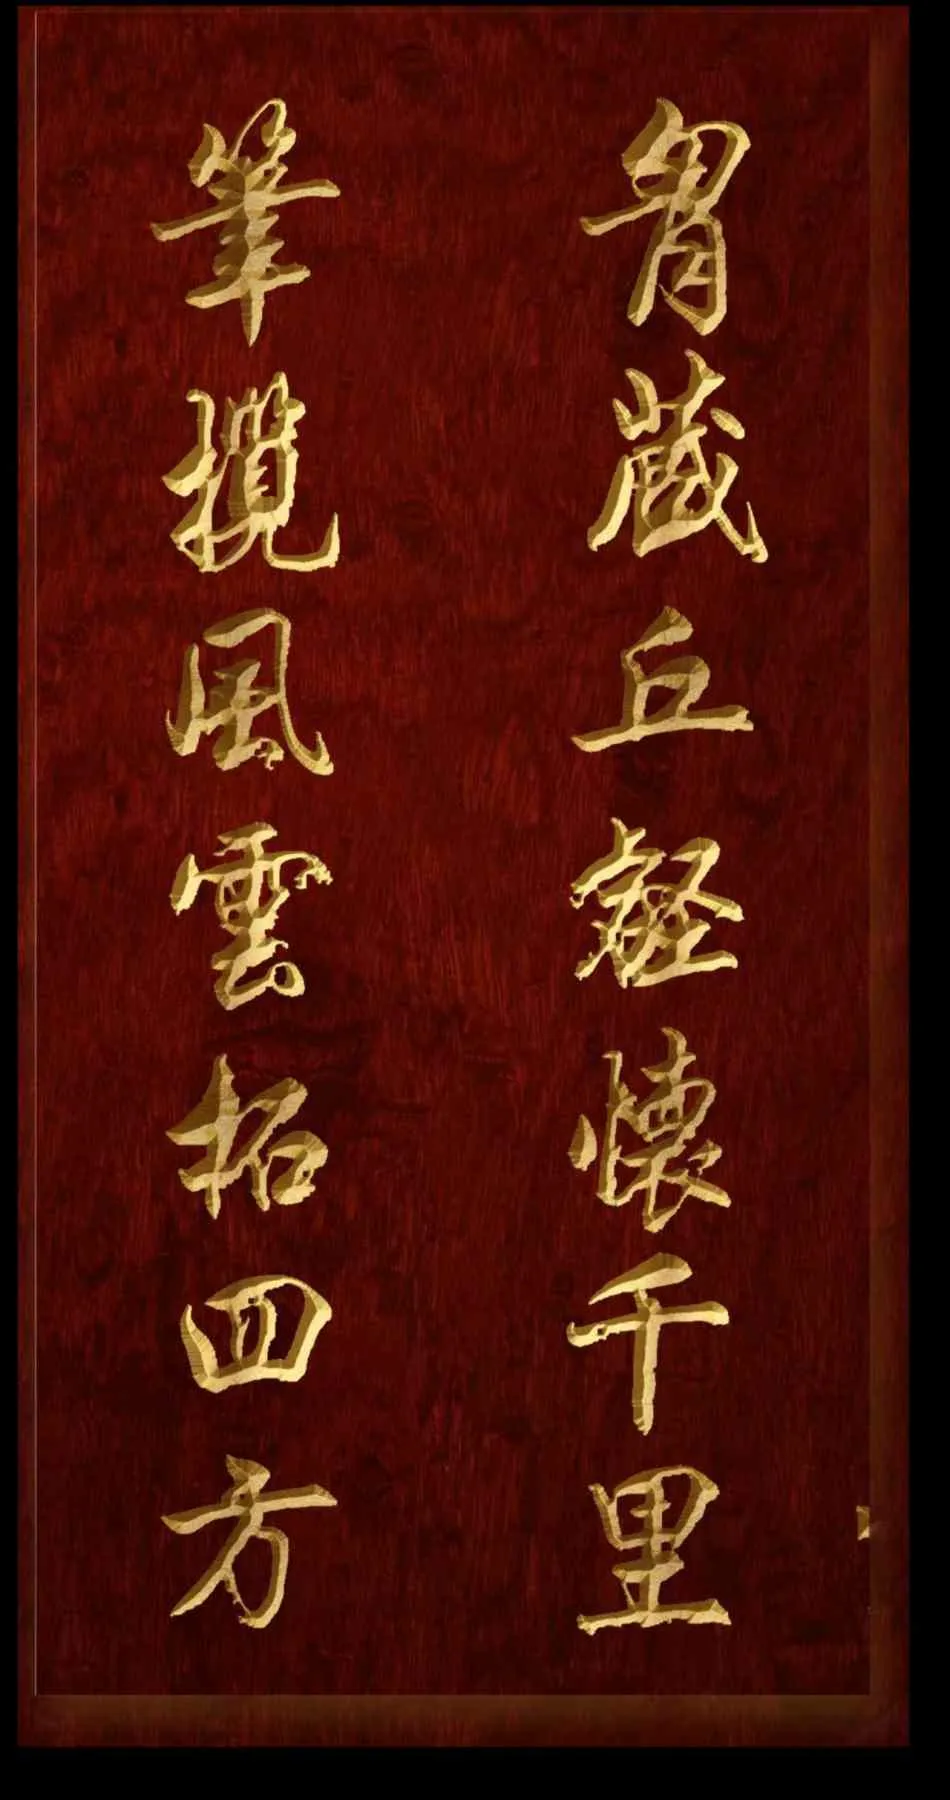 胷藏丘壑懷千里
筆攬風雲拓四方